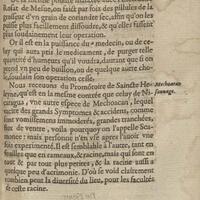 De la mesme poudre mixtionnée
Rosat de Mesué, on faict par fois des pillules de la
grosseur d'vn grain de coriandre sec, affin qu'on les
puisse plus facilement dissoudre, & qu'elles facent
plus soudainement leur operation.
Or il est en la puissance du medecin, ou de ce-
luy qui aura pris le medicament, de purger telle
quantité d'humeurs qu'il voudra, d'autant que si on
prend vn peu de bouillon, ou de quelque autre chose,
soudain son operation cesse.
Nous receuons du Promôtoire de Saincte He-
leyne, qu'est en la mesme contrée que celuy de Ni-
caragua, vne autre espece de Mechoacan, lequel
excite des grands Symptomes & accidents, comme
sont vomissements immoderés, grandes tranchées,
flux de ventre, voila pourquoy on l'appelle Scam-
monee: mais personne n'en vse apres l'auoir vne
fois experimenté. Il est semblable à l'autre, tant en
fueilles que en rameaux, & racine, mais qui sont en
tout & par tout plus petites, & la racine aussi a
quelque peu d'acrimonie. D'où se void clairement
combien peut la diuersité du lieu, pour les facultés
de ceste racine.
Mechoacan
sauuage.